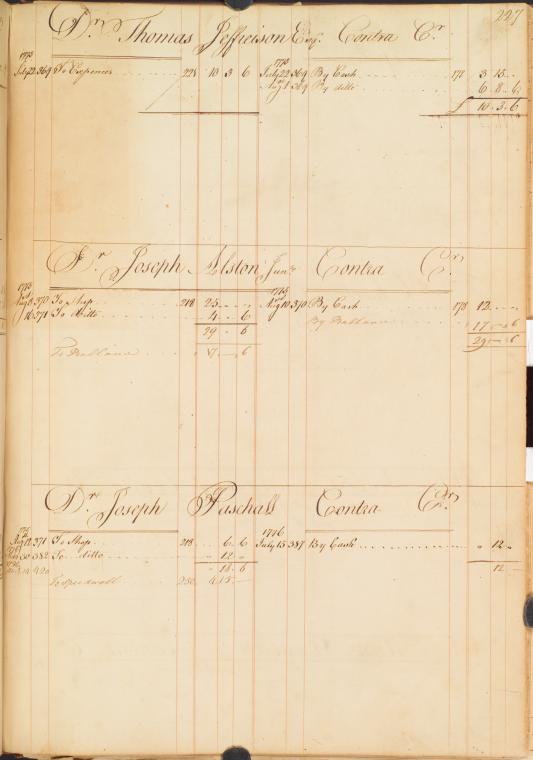 227
Dr Thomas Jeffreison Esqr Contra Cr
1775 1775
July 22 369 To Expences 228 10 3 6 July 22 369 By Cash 178 3 15
Augt 1 369 By ditto 6 8 6
£ 10 3 6
Dr Joseph Alston Junr Contra Cr
1775 1775
Augt 370 To Shop 218 25 Augt 10 370 By Cash 178 12
16 371 To ditto 4 6 By Ballance 17 6
29 6 29 6
To Ballance 17 6
Dr Joseph Paschall Contra Cr
1775 1776
Augt 371 To Shop 218 6 6 July 15 387 By Cash 12
382 To ditto 12
18 6 12
420 To Speedwell 250 4 15